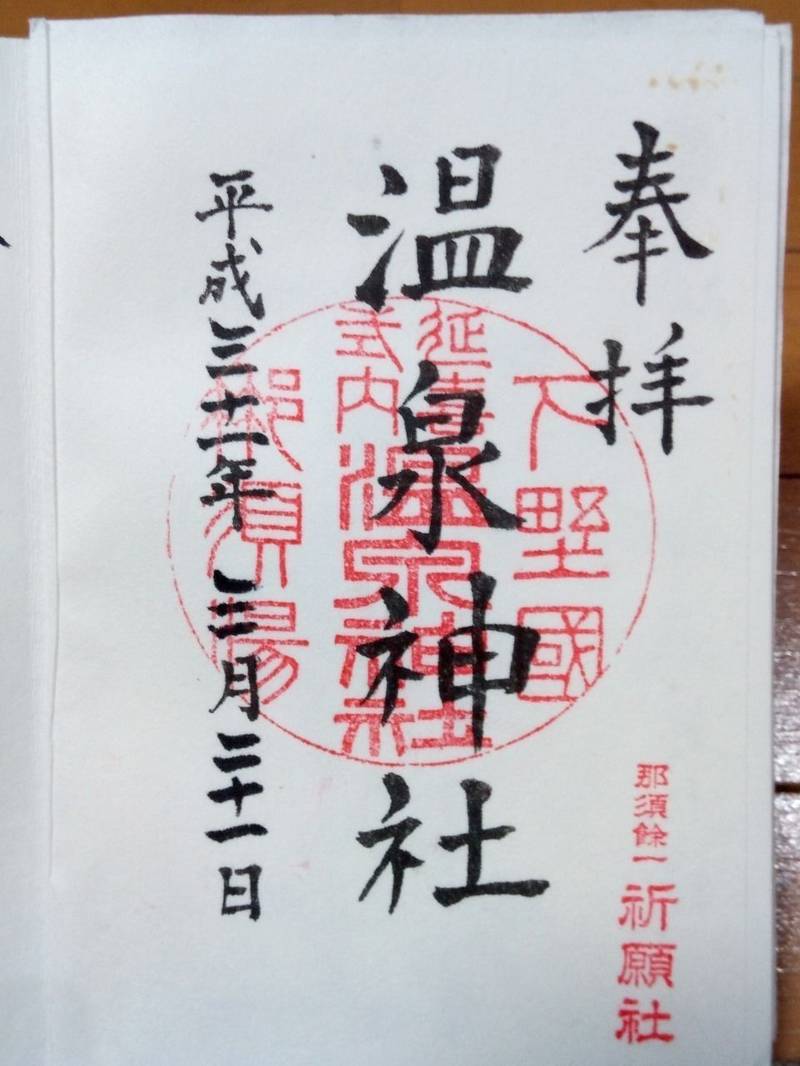 奉拝
温泉神社
平成三十一年 三月二十一日
下野國
延喜
式内
温泉神社
那須湯
那須餘一
祈願社